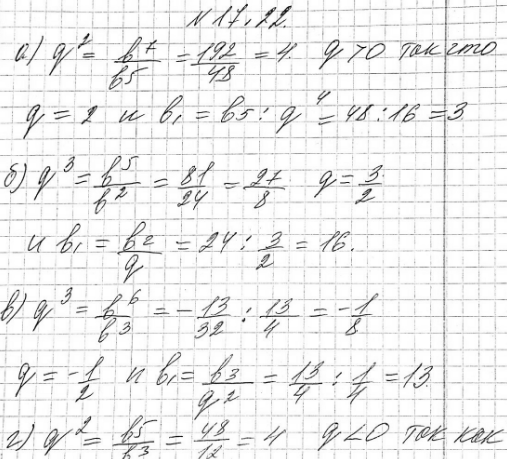 №17.22.
а) q² = b7/b5 = 192/48 = 4. q>0 так что
q = 2 и b₁ = b5 : q⁴ = 48 : 16 = 3
б) q³ = b5/b2 = 81/24 = 27/8 q = 3/2
и b₁ = b2/q = 24 : 3/2 = 16.
в) q³ = b6/b3 = -13/32 : 13/4 = -1/8
q = -1/2 и b₁ = b3/q² = 13/4 : 1/4 = 13.
г) q² = b5/b3 = 48/12 = 4 q<0 так как